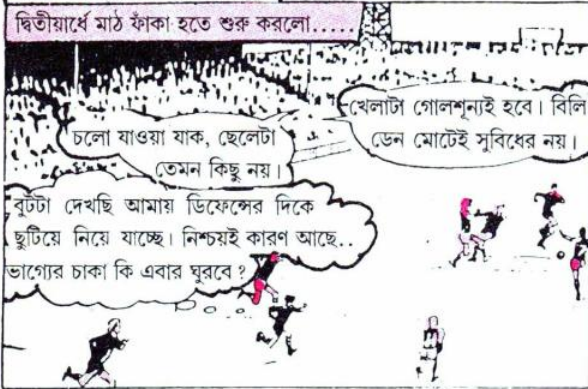 দ্বিতীয়ার্ধে মাঠ ফাঁকা হতে শুরু করলো.....
চলো যাওয়া যাক, ছেলেটা
তেমন কিছু নয়।
খেলাটা গোলশূন্যই হবে। বিলি
ডেন মোটেই সুবিধের নয়।
বুটটা দেখছি আমায় ডিফেন্সের দিকে
ছুটিয়ে নিয়ে যাচ্ছে। নিশ্চয়ই কারণ আছে..
ভাগ্যের চাকা কি এবার ঘুরবে?